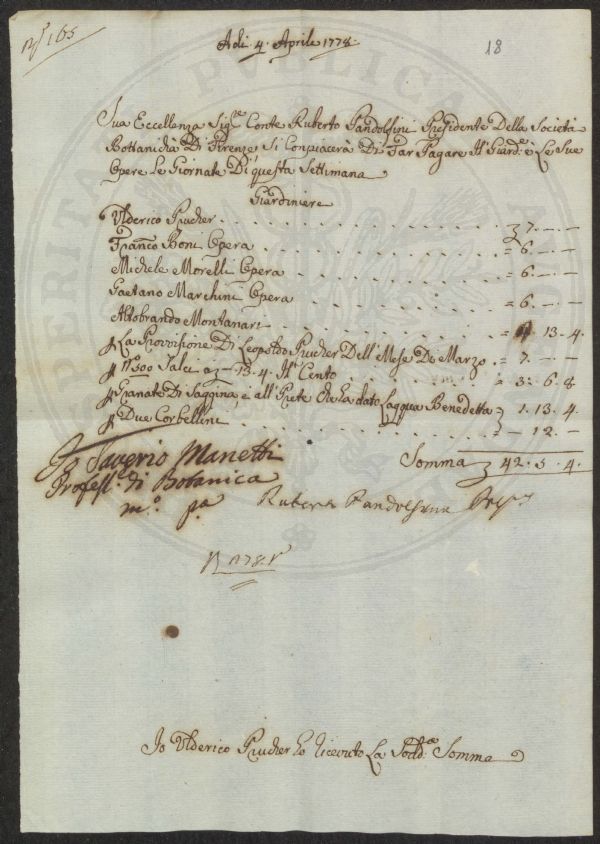 N° 165
Adi 4. Aprile 1778.
18
Sua Eccellanza Sig.re Conte Ruberto Pandolfini Presidente Della Società
Bottanicha Di Firenze, Si Conpiacerà Di Far Pagare Il Giard.e e Le Sue
Opere Le Giornate Di questa Settimana
Giardiniere
Ulderico Prucher . . . 7. — —
Franco Boni Opera . . . = 6. — —
Michele Morelli Opera . . . = 6. — —
Gaetano Marchini Opera . . . = 6. — —
Aldobrando Montanari . . . = 13. 4.
p La Provvisione Di Leopoldo Prucher Dell'Mese De Marzo = 7. — —
p N° 500 Salci a — 13. 4. Il Cento . . . = 3. 6. 8
p Granate Di Saggina, e all'Prete Che ha dato Lacqua Benedetta 1. 13. 4.
p Due Corbellini . . . = — 12. —
Somma 42. 5. 4.
Io Saverio Manetti
Profess. di Botanica
m.o p.a
Ruberto Pandolfini Pres.
Io Ulderico Prucher ho Riceuto La Sodd.a Somma